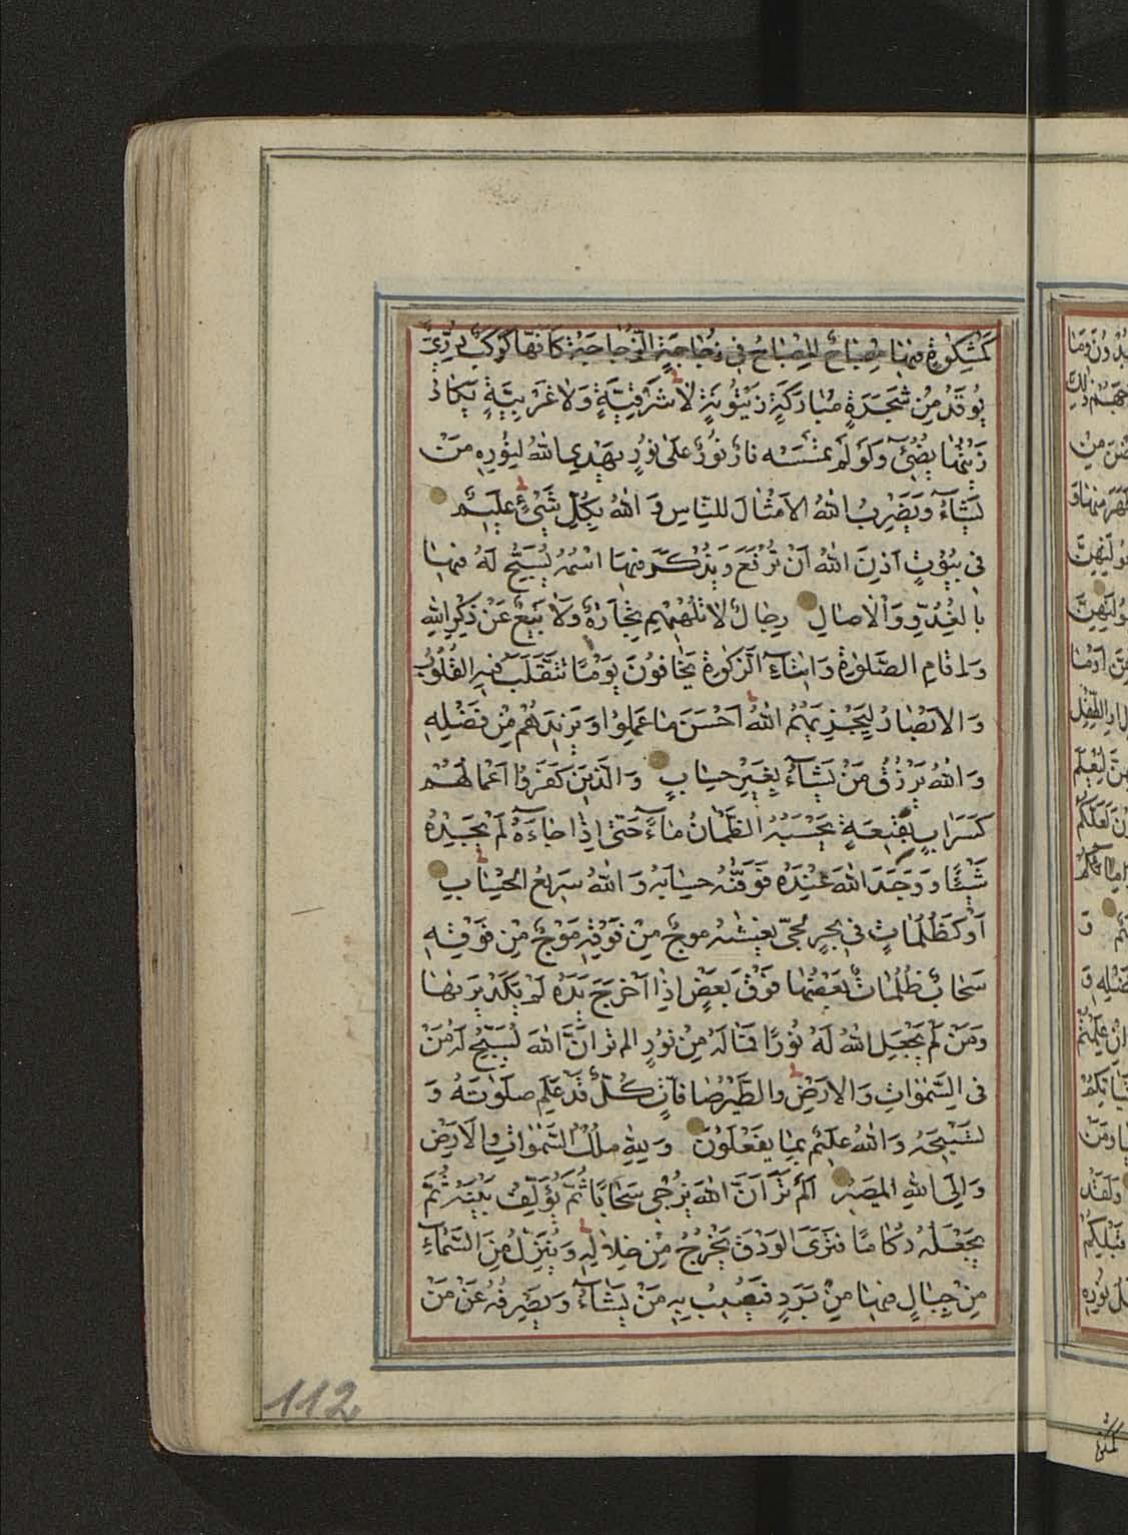 كَمِشْكٰوةٍ فِيهَا مِصْبَاحٌ الْمِصْبَاحُ فِي زُجَاجَةٍ الزُّجَاجَةُ كَاَنَّهَا كَوْكَبٌ دُرِّيٌّ
يُوقَدُ مِنْ شَجَرَةٍ مُبَارَكَةٍ زَيْتُونَةٍ لَا شَرْقِيَّةٍ وَلَا غَرْبِيَّةٍ يَكَادُ
زَيْتُهَا يُضِيۤئُ وَلَوْ لَمْ تَمْسَسْهُ نَارٌ نُورٌ عَلٰى نُورٍ يَهْدِي اللهُ لِنُورِهِ مَنْ
يَشَاۤءُ وَيَضْرِبُ اللهُ الْاَمْثَالَ لِلنَّاسِ وَاللهُ بِكُلِّ شَيْئٍ عَلِيمٌ
فِي بُيُوتٍ اَذِنَ اللهُ اَنْ تُرْفَعَ وَيُذْكَرَ فِيهَا اسْمُهُ يُسَبِّحُ لَهُ فِيهَا
بِالْغُدُوِّ وَالْاٰصَالِ رِجَالٌ لَا تُلْهِيهِمْ تِجَارَةٌ وَلَا بَيْعٌ عَنْ ذِكْرِ اللهِ
وَاِقَامِ الصَّلٰوةِ وَاِيتَاۤءِ الزَّكٰوةِ يَخَافُونَ يَوْمًا تَتَقَلَّبُ فِيهِ الْقُلُوبُ
وَالْاَبْصَارُ لِيَجْزِيَهُمُ اللهُ اَحْسَنَ مَا عَمِلُوا وَيَزِيدَهُمْ مِنْ فَضْلِهِ
وَاللهُ يَرْزُقُ مَنْ يَشَاۤءُ بِغَيْرِ حِسَابٍ وَالَّذِينَ كَفَرُوا اَعْمَالُهُمْ
كَسَرَابٍ بِقِيعَةٍ يَحْسَبُهُ الظَّمْاٰنُ مَاۤءً حَتّٰى اِذَا جَاۤءَهُ لَمْ يَجِدْهُ
شَيْئًا وَوَجَدَ اللهَ عِنْدَهُ فَوَفّٰيهُ حِسَابَهُ وَاللهُ سَرِيعُ الْحِسَابِ
اَوْ كَظُلُمَاتٍ فِي بَحْرٍ لُجِّيٍّ يَغْشٰيهُ مَوْجٌ مِنْ فَوْقِهِ مَوْجٌ مِنْ فَوْقِهِ
سَحَابٌ ظُلُمَاتٌ بَعْضُهَا فَوْقَ بَعْضٍ اِذَا اَخْرَجَ يَدَهُ لَمْ يَكَدْ يَرٰيهَا
وَمَنْ لَمْ يَجْعَلِ اللهُ لَهُ نُورًا فَمَا لَهُ مِنْ نُورٍ اَلَمْ تَرَ اَنَّ اللهَ يُسَبِّحُ لَهُ مَنْ
فِي السَّمٰوَاتِ وَالْاَرْضِ وَالطَّيْرُ صَاۤفَّاتٍ كُلٌّ قَدْ عَلِمَ صَلٰوتَهُ وَ
تَسْبِيحَهُ وَاللهُ عَلِيمٌ بِمَا يَفْعَلُونَ وَلِلّٰهِ مُلْكُ السَّمٰوَاتِ وَالْاَرْضِ
وَاِلَى اللهِ الْمَصِيرُ اَلَمْ تَرَ اَنَّ اللهَ يُزْجِي سَحَابًا ثُمَّ يُؤَلِّفُ بَيْنَهُ ثُمَّ
يَجْعَلُهُ رُكَامًا فَتَرَى الْوَدْقَ يَخْرُجُ مِنْ خِلَالِهِ وَيُنَزِّلُ مِنَ السَّمَاۤءِ
مِنْ جِبَالٍ فِيهَا مِنْ بَرَدٍ فَيُصِيبُ بِهِ مَنْ يَشَاۤءُ وَيَصْرِفُهُ عَنْ مَنْ
112